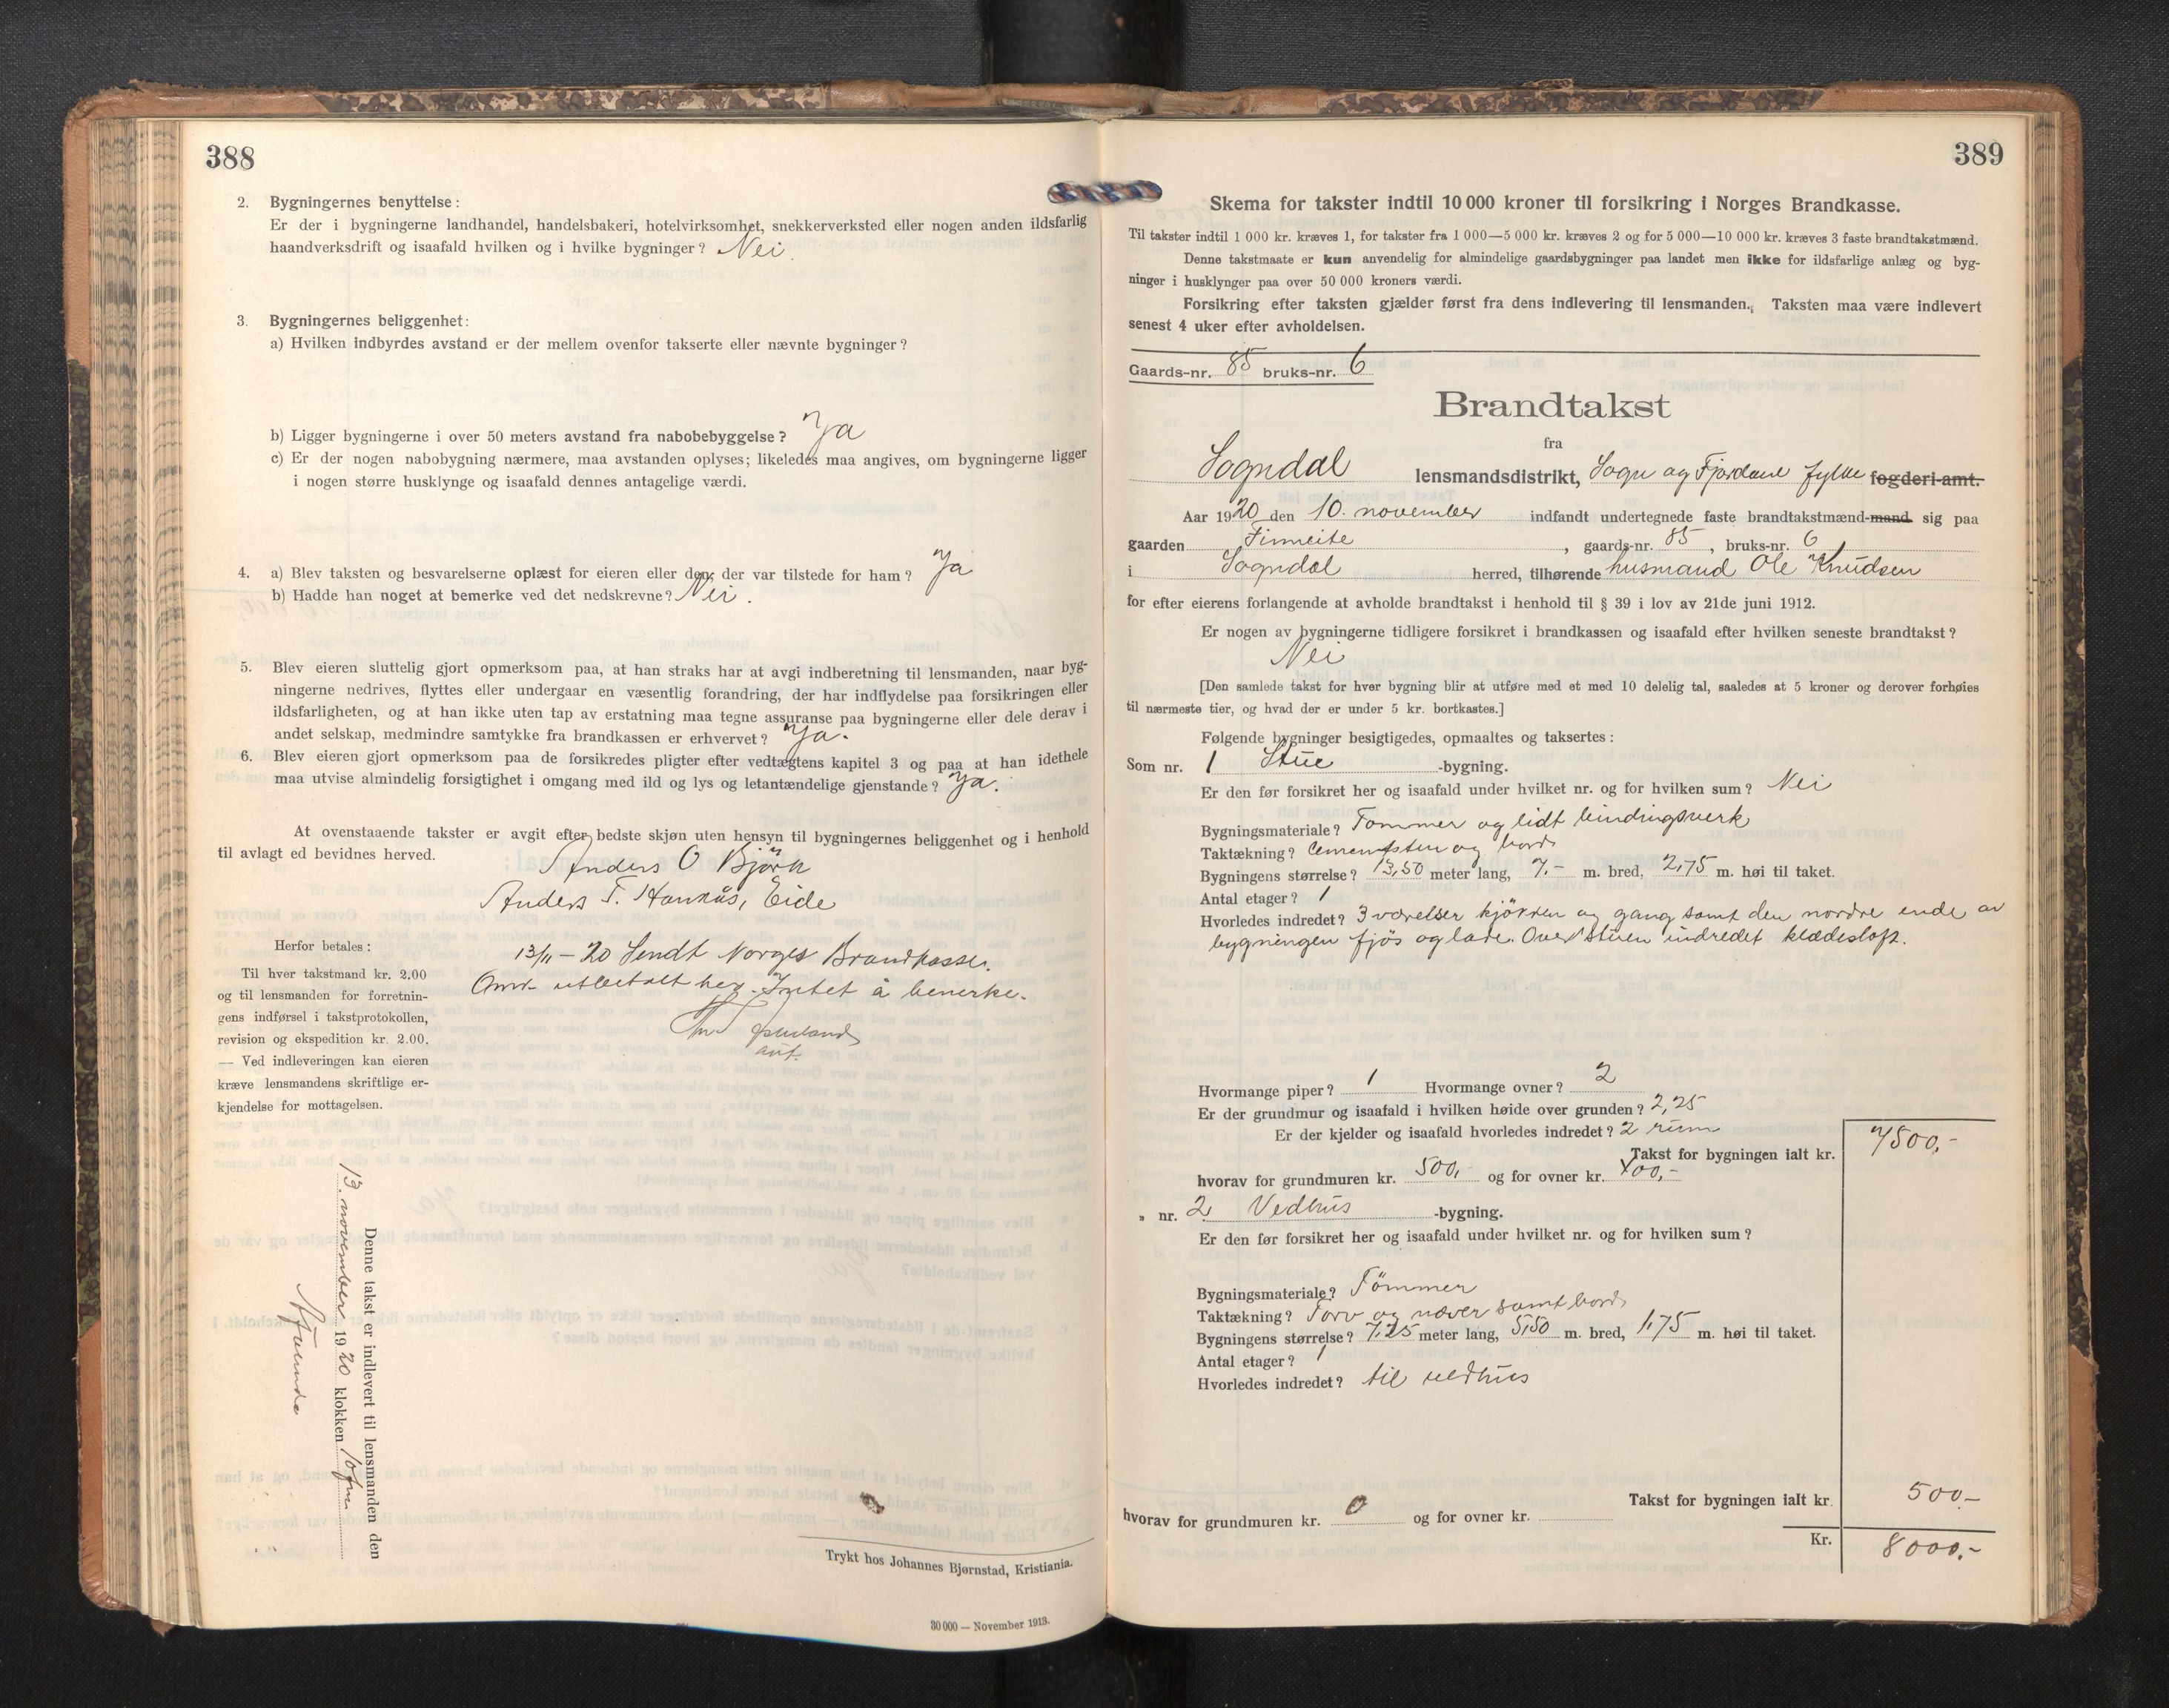 388
2. Bygningernes benyttelse:
Er der i bygningerne landhandel, handelsbakeri, hotelvirksomhet, snekkerverksted eller nogen anden ildsfarlig
haandverksdrift og isaafald hvilken og i hvilke bygninger? Nei.
3. Bygningernes beliggenhet:
a) Hvilken indbyrdes avstand er der mellem ovenfor takserte eller nævnte bygninger?
b) Ligger bygningerne i over 50 meters avstand fra nabobebyggelse? Ja
c) Er der nogen nabobygning nærmere, maa avstanden oplyses; likeledes maa angives, om bygningerne ligger
i nogen større husklynge og isaafald dennes antagelige værdi.
4. a) Blev taksten og besvarelserne oplæst for eieren eller den, der var tilstede for ham? Ja
b) Hadde han noget at bemerke ved det nedskrevne? Nei.
5. Blev eieren sluttelig gjort opmerksom paa, at han straks har at avgi indberetning til lensmanden, naar byg-
ningerne nedrives, flyttes eller undergaar en væsentlig forandring, der har indflydelse paa forsikringen eller
ildsfarligheten, og at han ikke uten tap av erstatning maa tegne assuranse paa bygningerne eller dele derav i
andet selskap, medmindre samtykke fra brandkassen er erhvervet? Ja.
6. Blev eieren gjort opmerksom paa de forsikredes pligter efter vedtægtens kapitel 3 og paa at han idethele
maa utvise almindelig forsigtighet i omgang med ild og lys og letantændelige gjenstande? Ja.
At ovenstaaende takster er avgit efter bedste skjøn uten hensyn til bygningernes beliggenhet og i henhold
til avlagt ed bevidnes herved.
Anders O Björk
Anders T. Haukås, Eide
Herfor betales:
Til hver takstmand kr. 2.00
og til lensmanden for forretnin-
gens indførsel i takstprotokollen,
revision og ekspedition kr. 2.00.
— Ved indleveringen kan eieren
kræve lensmandens skriftlige er-
kjendelse for mottagelsen.
13/11 - 20 Sendt Norges Brandkasse.
Omk. utbetalt her. Intet å bemerke.
Denne takst er indlevert til lensmanden den
13. november 1920 klokken 10 fm.
Trykt hos Johannes Bjørnstad, Kristiania.
30 000 — November 1913.
389
Skema for takster indtil 10 000 kroner til forsikring i Norges Brandkasse.
Til takster indtil 1 000 kr. kræves 1, for takster fra 1 000—5 000 kr. kræves 2 og for 5 000—10 000 kr. kræves 3 faste brandtakstmænd.
Denne takstmaate er kun anvendelig for almindelige gaardsbygninger paa landet men ikke for ildsfarlige anlæg og byg-
ninger i husklynger paa over 50 000 kroners værdi.
Forsikring efter taksten gjælder først fra dens indlevering til lensmanden. Taksten maa være indlevert
senest 4 uker efter avholdelsen.
Gaards-nr. 85 bruks-nr. 6
Brandtakst
fra
Sogndal lensmandsdistrikt, Sogn og Fjordane fylke fogderi-amt.
Aar 1920 den 10. november indfandt undertegnede faste brandtakstmænd-mand sig paa
gaarden Fimreite, gaards-nr. 85, bruks-nr. 6
i Sogndal herred, tilhørende husmand Ole Knudsen
for efter eierens forlangende at avholde brandtakst i henhold til § 39 i lov av 21de juni 1912.
Er nogen av bygningerne tidligere forsikret i brandkassen og isaafald efter hvilken seneste brandtakst?
Nei
[Den samlede takst for hver bygning blir at utføre med et med 10 delelig tal, saaledes at 5 kroner og derover forhøies
til nærmeste tier, og hvad der er under 5 kr. bortkastes.]
Følgende bygninger besigtigedes, opmaaltes og taksertes:
Som nr. 1 Stue -bygning.
Er den før forsikret her og isaafald under hvilket nr. og for hvilken sum? Nei
Bygningsmateriale? Tømmer og lidt bindingsverk
Taktækning? Cementsten og bord
Bygningens størrelse? 13,50 meter lang, 7.- m. bred, 2,75 m. høi til taket.
Antal etager? 1
Hvorledes indredet? 3 værelser kjökken og gang samt den nordre ende av
bygningen fjös og lade. Over stuen indredet klædesloft.
Hvormange piper? 1 Hvormange ovner? 2
Er der grundmur og isaafald i hvilken høide over grunden? 2,25
Er der kjelder og isaafald hvorledes indredet? 2 rum
Takst for bygningen ialt kr. 7500,-
hvorav for grundmuren kr. 500,- og for ovner kr. 400,-
„ nr. 2 Vedhus -bygning.
Er den før forsikret her og isaafald under hvilket nr. og for hvilken sum?
Bygningsmateriale? Tömmer
Taktækning? Torv og næver samt bord
Bygningens størrelse? 7,25 meter lang, 5,50 m. bred, 1,75 m. høi til taket.
Antal etager? 1
Hvorledes indredet? til vedhus
Takst for bygningen ialt kr. 500.-
hvorav for grundmuren kr. 0 og for ovner kr.
Kr. 8000.-